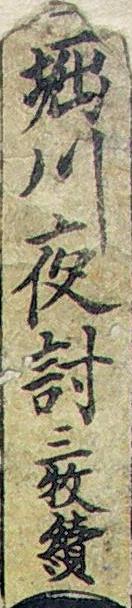 堀川夜討三枚續